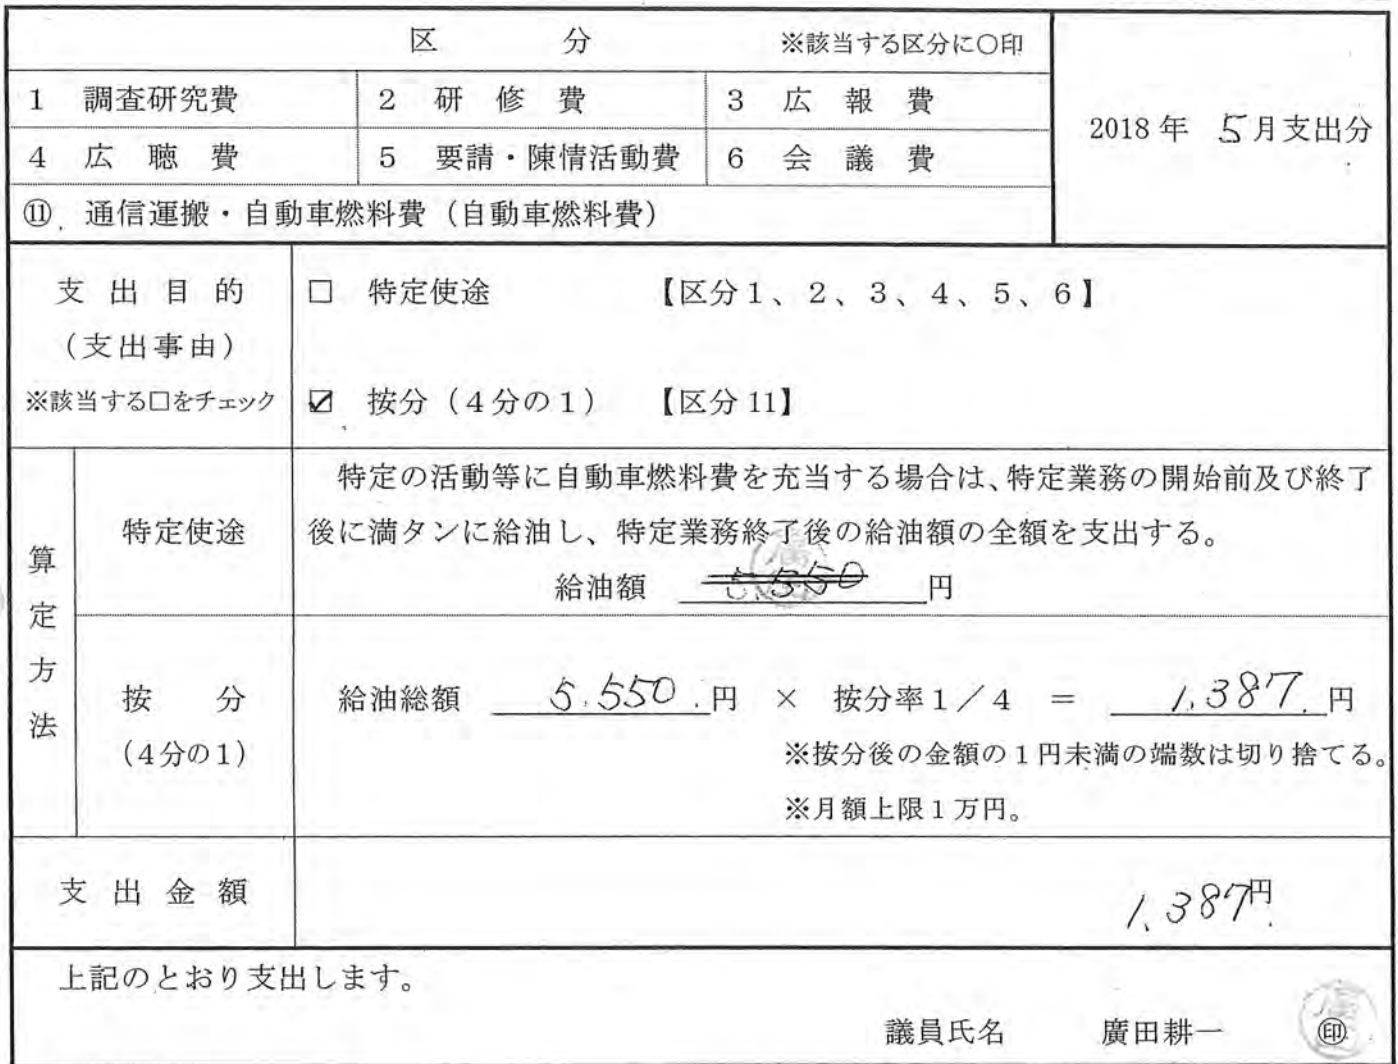 区 分 ※該当する区分に○印
1 調査研究費 2 研修費 3 広報費
2018年 5月支出分
4 広聴費 5 要請・陳情活動費 6 会議費
⑪ 通信運搬・自動車燃料費(自動車燃料費)
支出目的
(支出事由)
※該当する□をチェック
□ 特定使途 【区分1、2、3、4、5、6】
☑ 按分(4分の1) 【区分11】
算定方法
特定使途
特定の活動等に自動車燃料費を充当する場合は、特定業務の開始前及び終了
後に満タンに給油し、特定業務終了後の給油額の全額を支出する。
給油額 5.550 円
按分
(4分の1)
給油総額 5.550 円 × 按分率1/4 = 1,387 円
※按分後の金額の1円未満の端数は切り捨てる。
※月額上限1万円。
支出金額
1,387円
上記のとおり支出します。
議員氏名 廣田耕一 ㊞